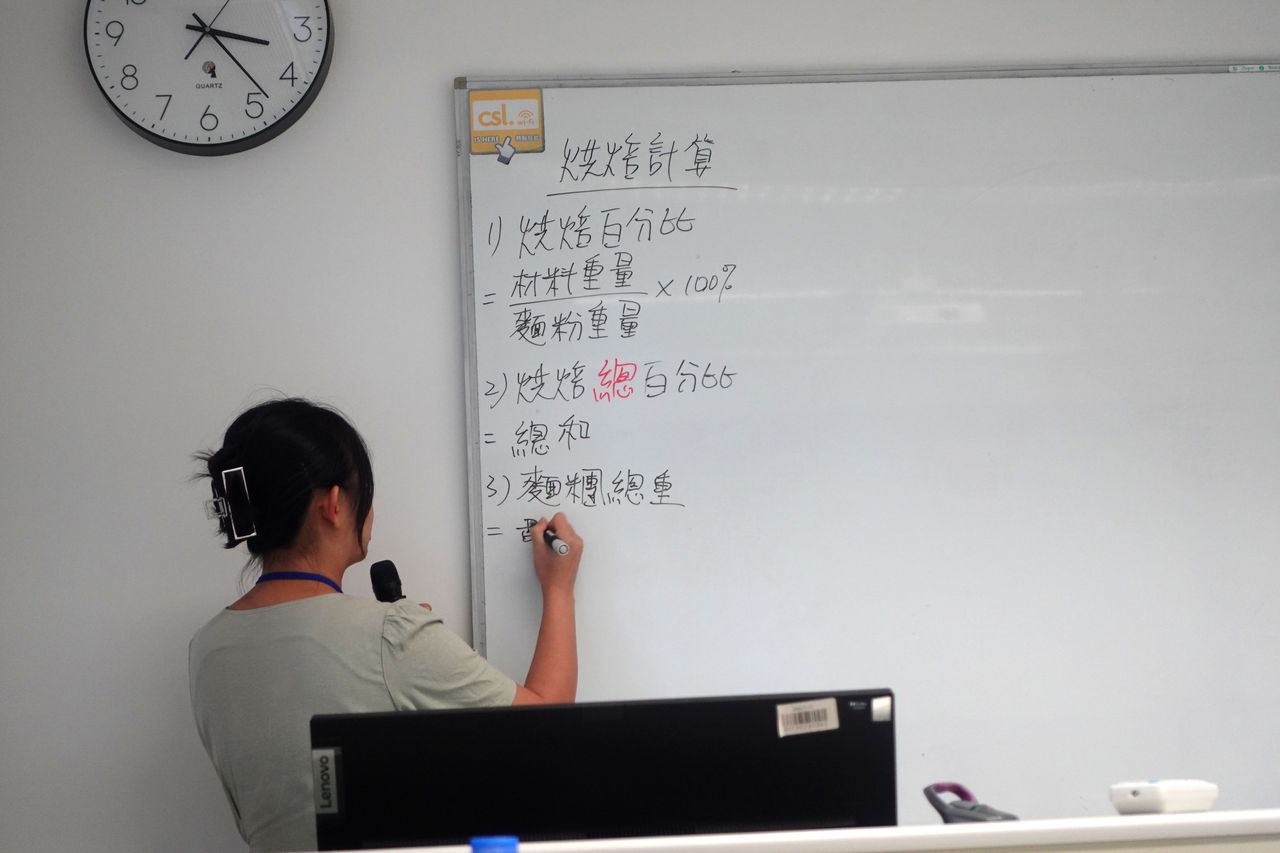 10
3
9
4
8
5
7
6
QUARTZ
csl.
wi-fi
IS HERE
烘焙計算
1) 烘焙百分比
= 材料重量 × 100%
麵粉重量
2) 烘焙總百分比
= 總和
3) 麵糰總重
=
Lenovo